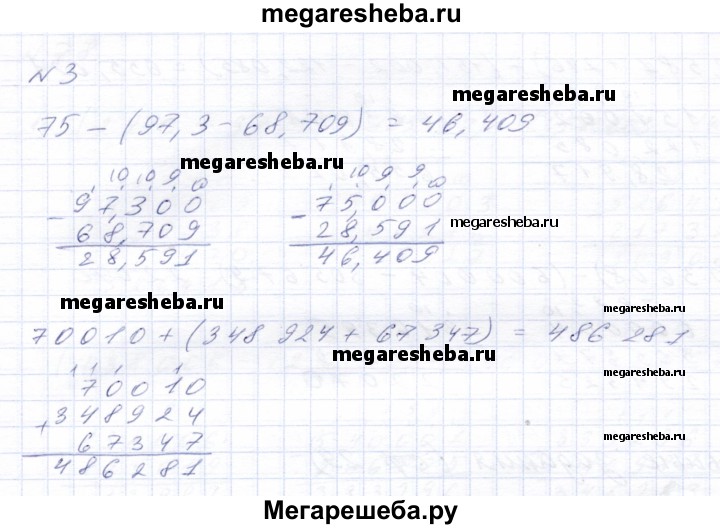 megaresheba.ru
N 3
megaresheba.ru
75 - (97,3 - 68,709) = 46,409
megaresheba.ru
10 10 9 10
10 9 9 10
- 97,300
68,709
28,591
- 75,000
28,591
46,409
megaresheba.ru
megaresheba.ru
megaresheba.ru
70010 + (348 924 + 67 347) = 486 281
megaresheba.ru
1 1 1 1
70010
+ 348924
67347
486281
megaresheba.ru
Мегарешеба.ру